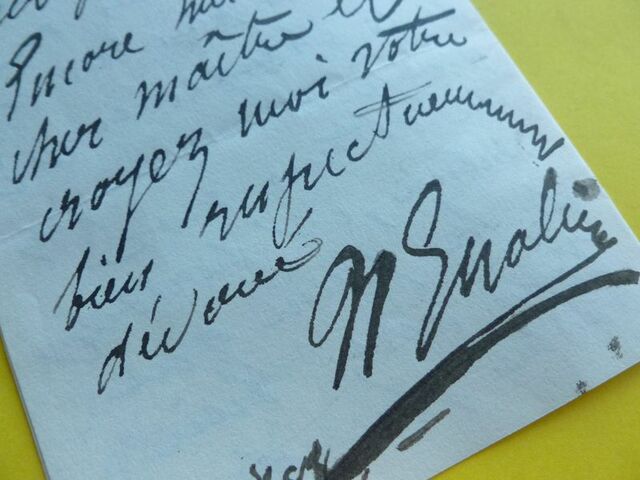 Encore
cher maître et
croyez moi votre
bien respectueusement
dévoué